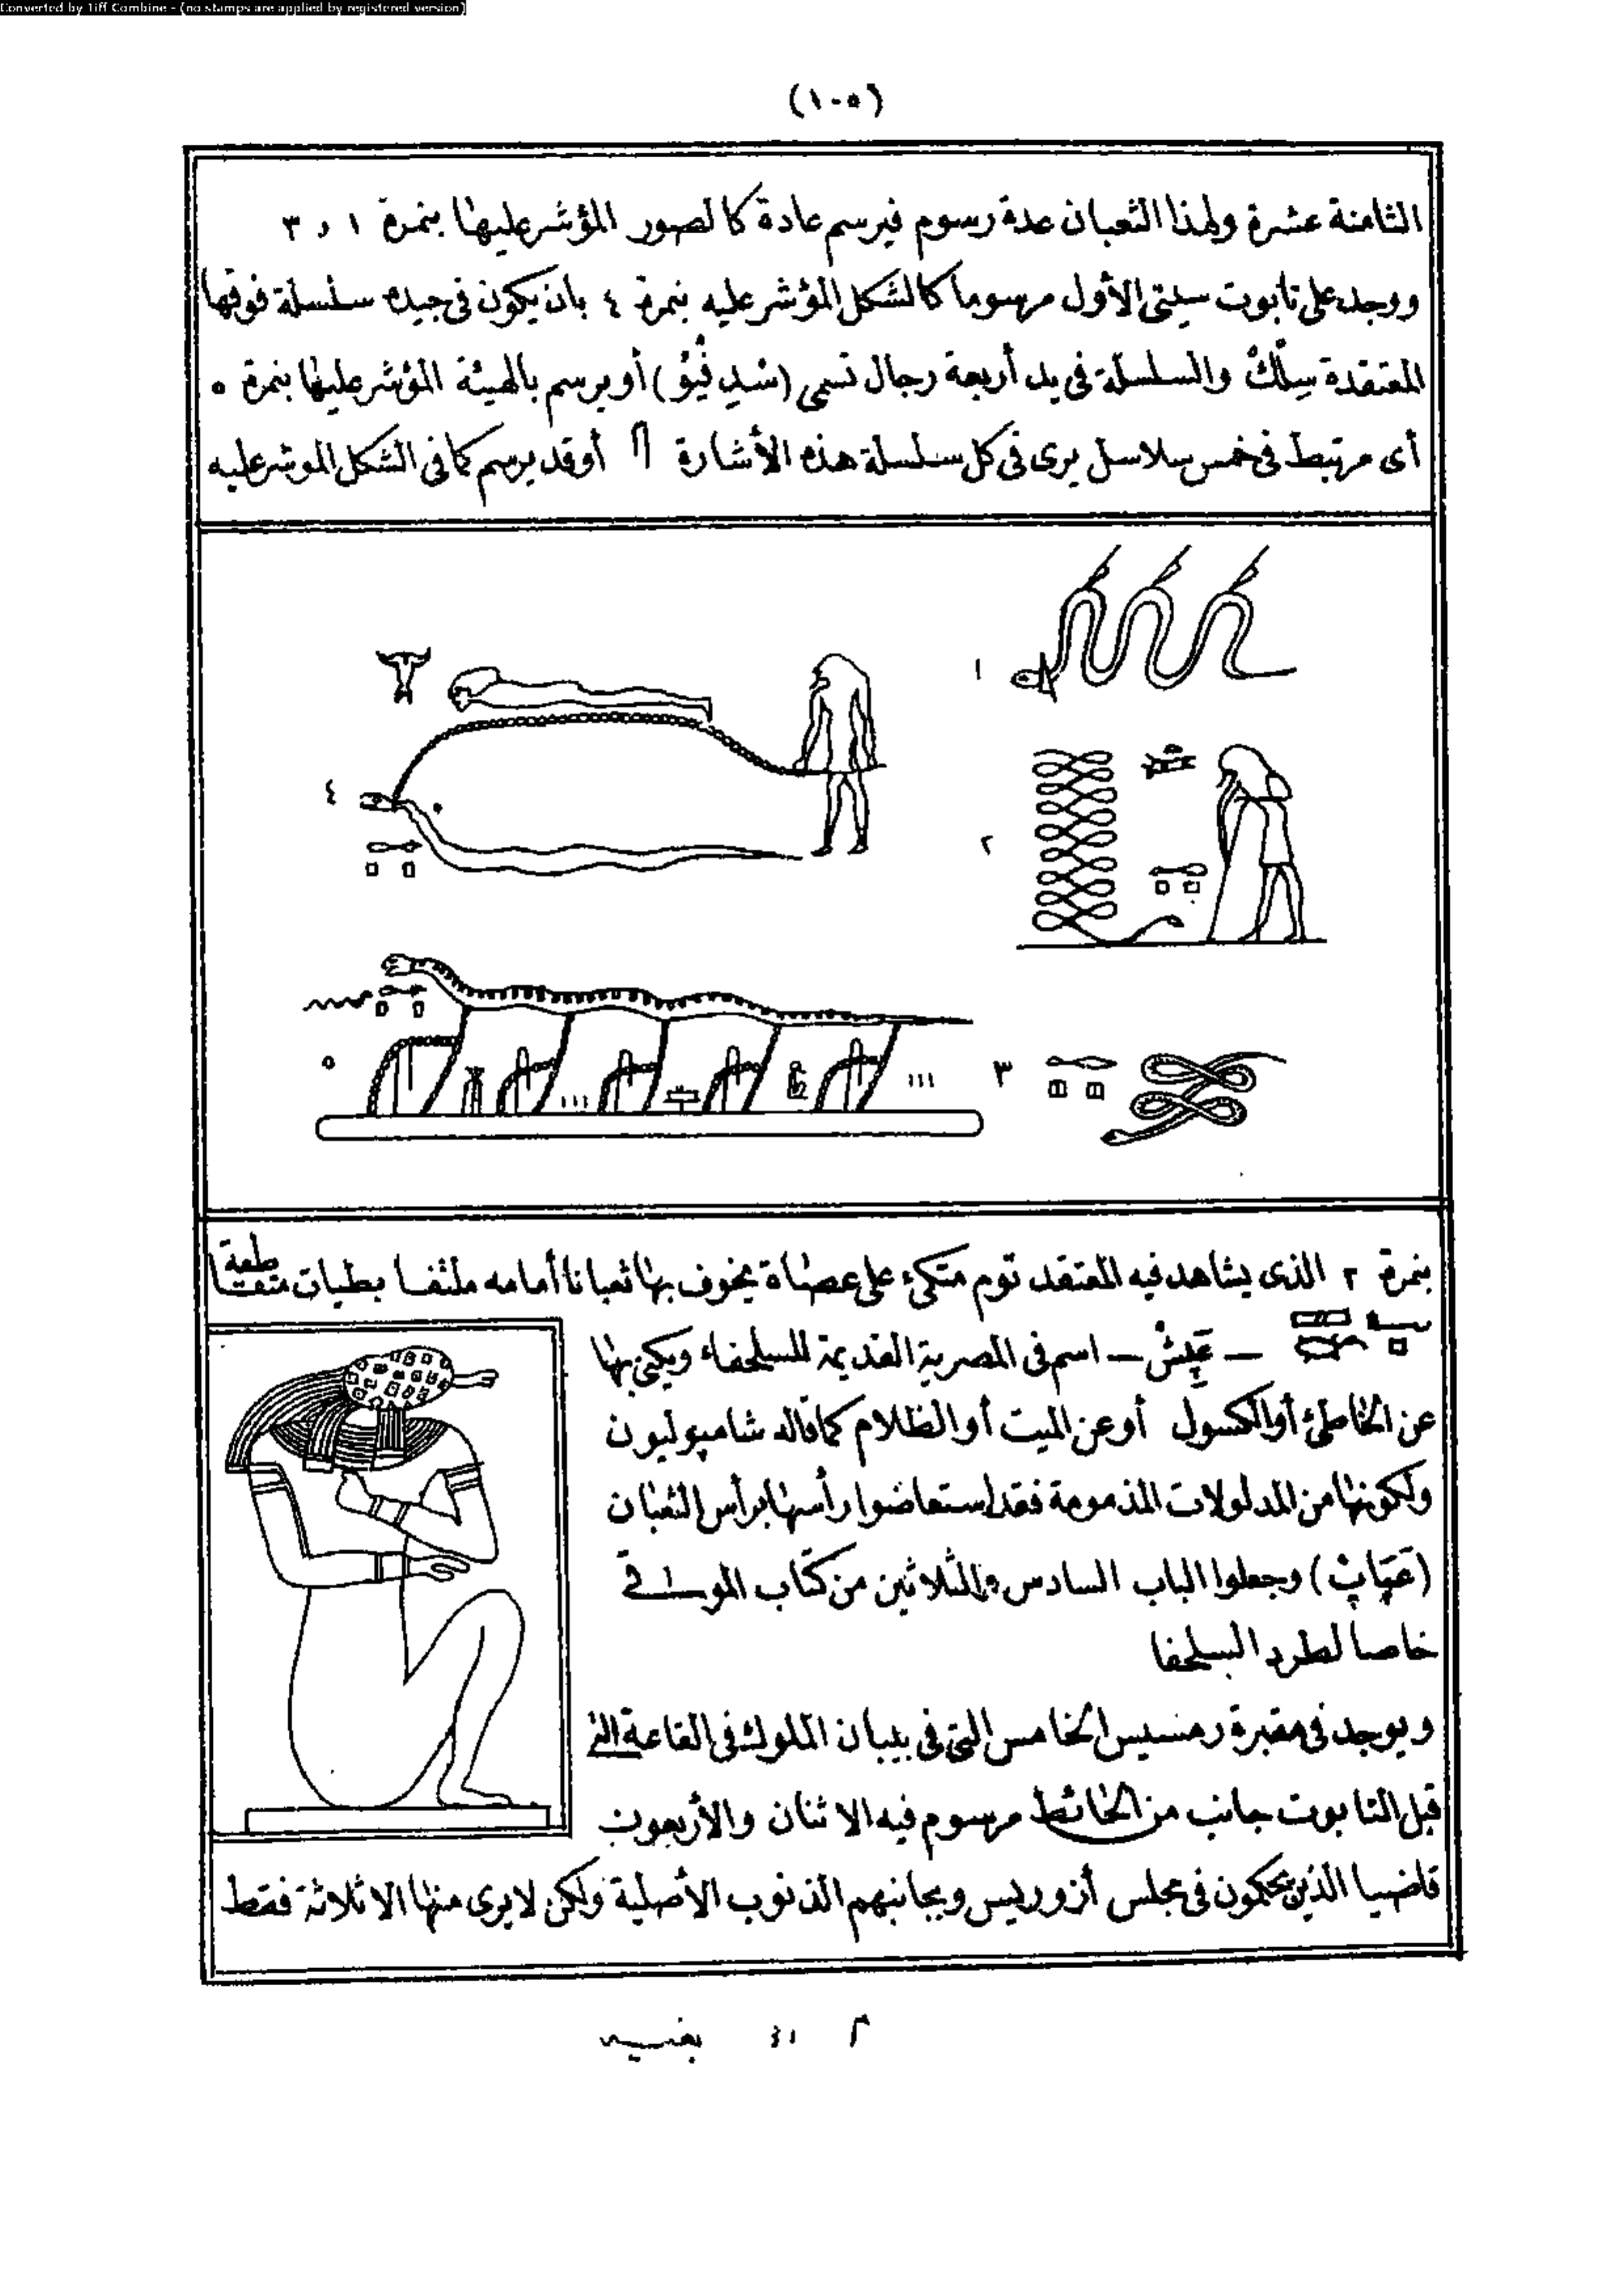 Converted by Tiff Combine - (no stamps are applied by registered version)
(١٠٥)
الثامنة عشرة ولهذا الثعبان عدة رسوم فيرسم عادة كالصور المؤشر عليها بنمرة ١ و ٣
ووجد على تابوت سيتى الأول مرسوما كالشكل المؤشر عليه بنمرة ٤ بان يكون فى جيده سلسلة فوقها
المعتقدة سلك والسلسلة فى يد أربعة رجال تسمى (شد فيو) أو يرسم بالهيئة المؤشر عليها بنمرة ٥
أى مرتبط فى خمس سلاسل يرى فى كل سلسلة هذه الأشارة أو قد يرسم كما فى الشكل الموشر عليه
١
٤
٢
٥
٣
بنمرة ٢ الذى يشاهد فيه المعتقد توم متكىء على عصاة يخوف بها ثعبانا أمامه ملتفا بطيات متقاطعة
— عپش — اسم فى المصرية القديمة للسلحفاء ويكنى بها
عن الخاطئ أو الكسول أو عن الميت أو الظلام كما قاله شامپوليون
ولكونها من المدلولات المذمومة فقد استعاضوا رأسها برأس الثعبان
(عپاپ) وجعلوا الباب السادس والثلاثين من كتاب الموتى
خاصا لطرد السلحفا
ويوجد فى مقبرة رمسيس الخامس التى فى بيبان الملوك فى القاعة التى
قبل التابوت جانب من الحائط مرسوم فيه الاثنان والأربعون
قاضيا الذين يحكمون فى مجلس أزوريس وبجانبهم الذنوب الأصلية ولكن لا يرى منها الا ثلاثة فقط
م ١٤ بغيه